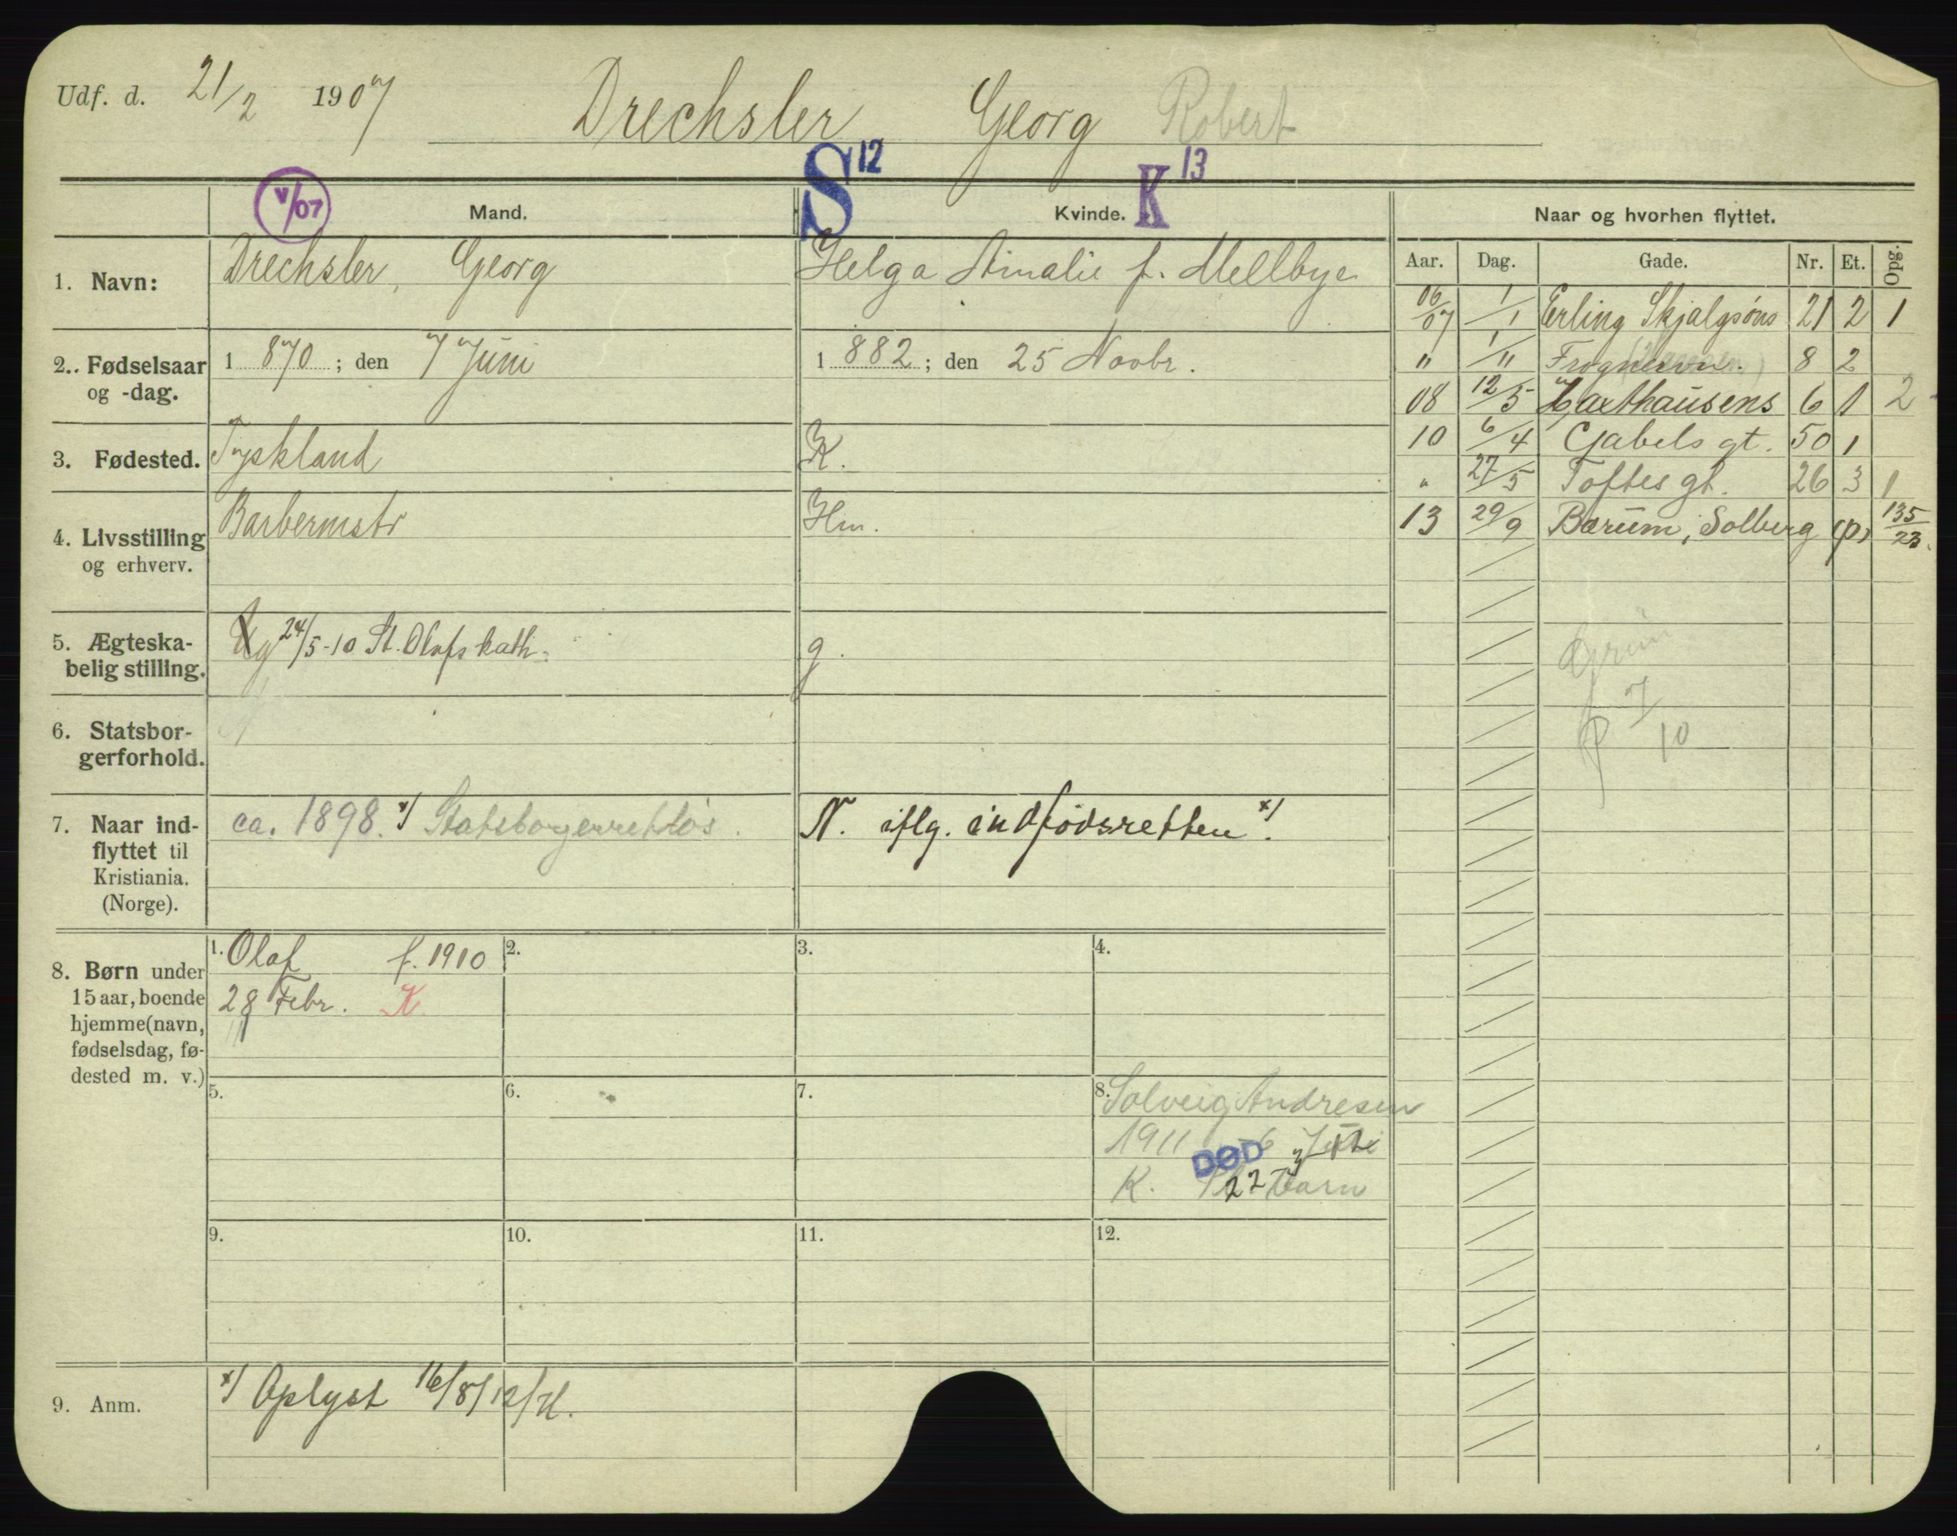 Udf. d. 21/2 1907 Drechsler Georg Robert
S 12 K 13
V/07 Mand. Kvinde. Naar og hvorhen flyttet.
Aar. Dag. Gade. Nr. Et. Opg.
1. Navn: Drechsler, Georg Helga Amalie f. Mellbye
2.. Fødselsaar og -dag. 1 870 ; den 7 Juni 1 882 ; den 25 Novbr.
3. Fødested. Tyskland K.
4. Livsstilling og erhverv. Barbermstr Hm.
5. Ægteskabelig stilling. g 24/5-10 St. Olafs kath. g.
6. Statsborgerforhold.
7. Naar indflyttet til Kristiania. (Norge). ca. 1898. x/ Statsborgerretløs. N. iflg. indfødsretten x/.
8. Børn under 15 aar, boende hjemme (navn, fødselsdag, fødested m. v.)
1. Olaf f. 1910
28 Febr. K
2.
3.
4.
5.
6.
7.
8. Solveig Andresen
1911 6
DØD
K. 22 Barn
9.
10.
11.
12.
9. Anm. x/ Oplyst 16/8/12/H.
06/07 1/1 Erling Skjalgsøns 21 2 1
" 1/11 Frognervn. 8 2
08 12/5 Haxthausens 6 1 2
10 6/4 Gabels gt. 50 1
" 27/5 Toftes gt. 26 3 1
13 29/9 Bærum, Solberg (p) 135/23.
7/10